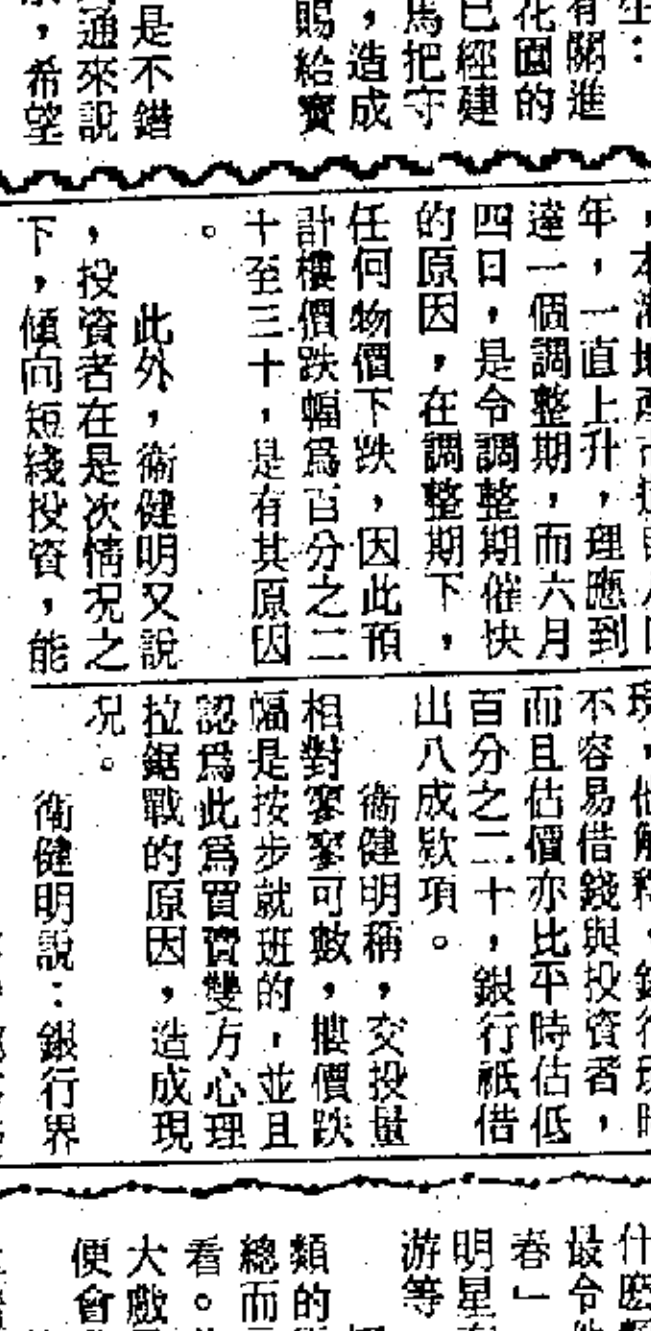 生：
有關進
花園的
已經建
馬把守
，造成
賜給寶
是不錯
通來說
，希望
年，一直上升，理應到
達一個調整期，而六月
四日，是令調整期催快
的原因，在調整期下，
任何物價下跌，因此預
計樓價跌幅爲百分之二
十至三十，是有其原因
。
此外，衞健明又說
，投資者在是次情況之
下，傾向短綫投資，能
不容易借錢與投資者，
而且估價亦比平時估低
百分之二十，銀行祇借
出八成欵項。
衞健明稱，交投量
相對寥寥可數，樓價跌
幅是按步就班的，並且
認爲此爲買賣雙方心理
拉鋸戰的原因，造成現
況。
衞健明說：銀行界
什麽
最令
春」
明星
游等
類的
總而
看。
大戲
便會